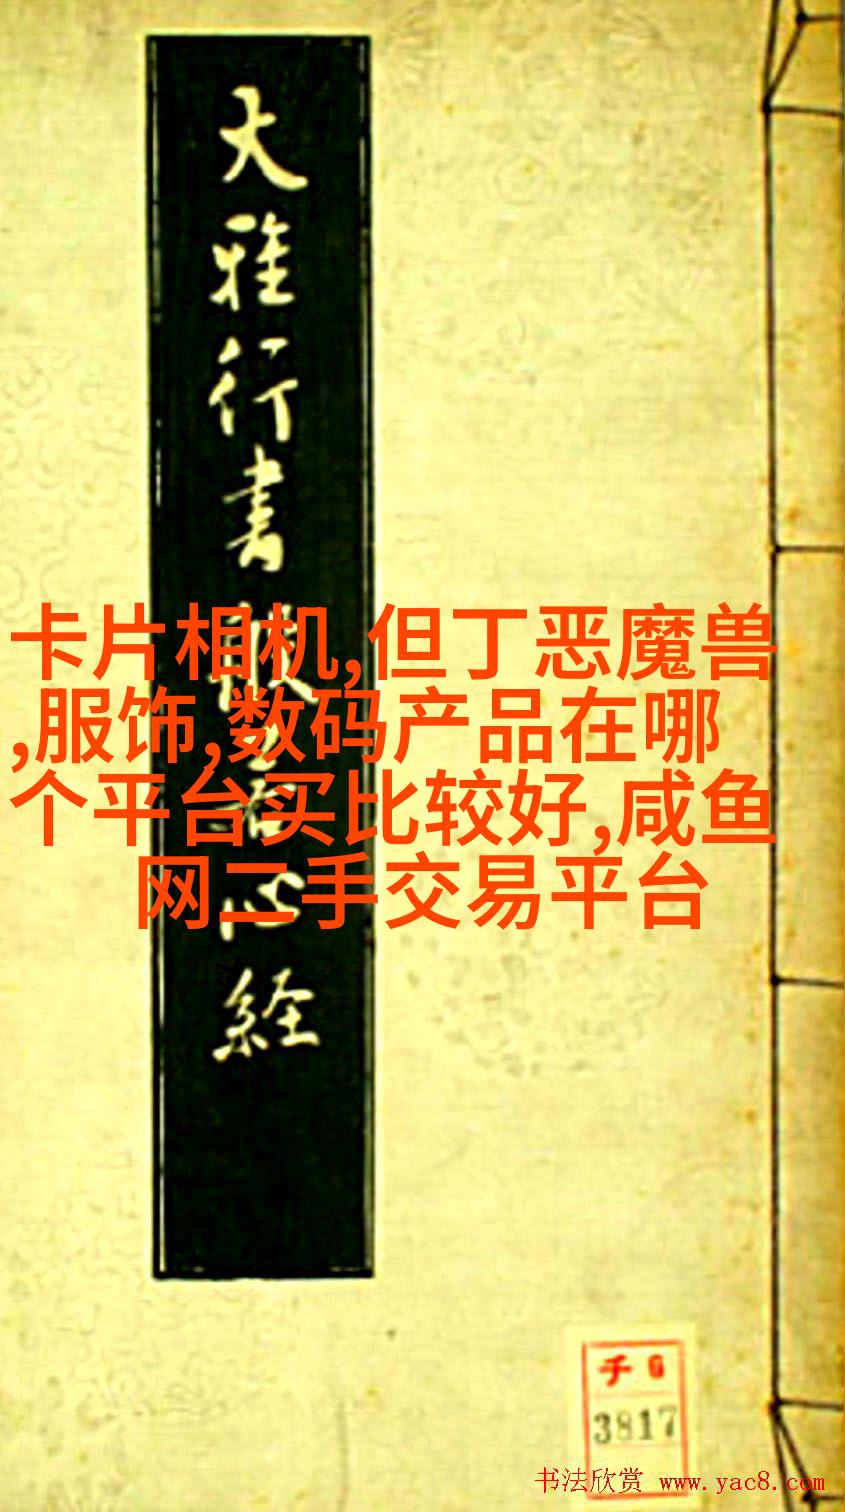 大雅行書般若心経
卡片相机,但丁恶魔兽
,服饰,数码产品在哪
个平台买比较好,咸鱼
网二手交易平台
チ6
3817
书法欣赏 www.yac8.com